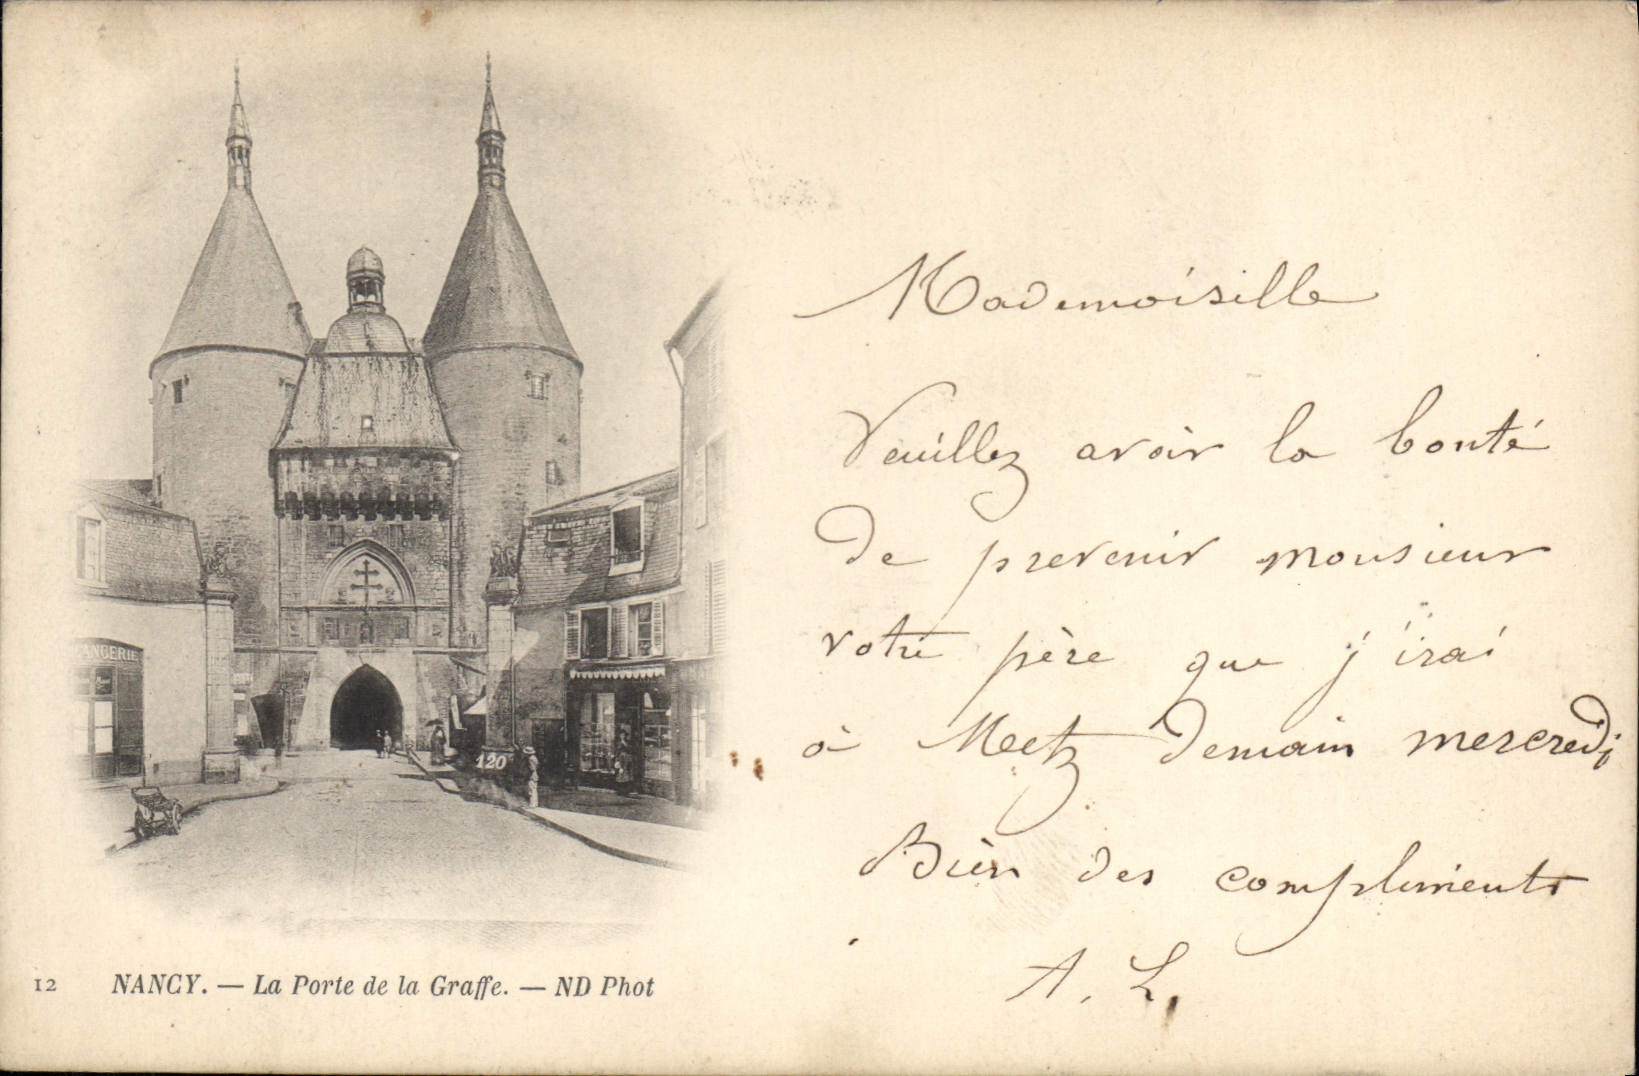 ANGERIE
120
12 NANCY. — La Porte de la Graffe. — ND Phot
Mademoiselle
Veuillez avoir la bonté
de prevenir monsieur
votre père que j'irai
à Metz demain mercredi
Bien des compliments
A. L.